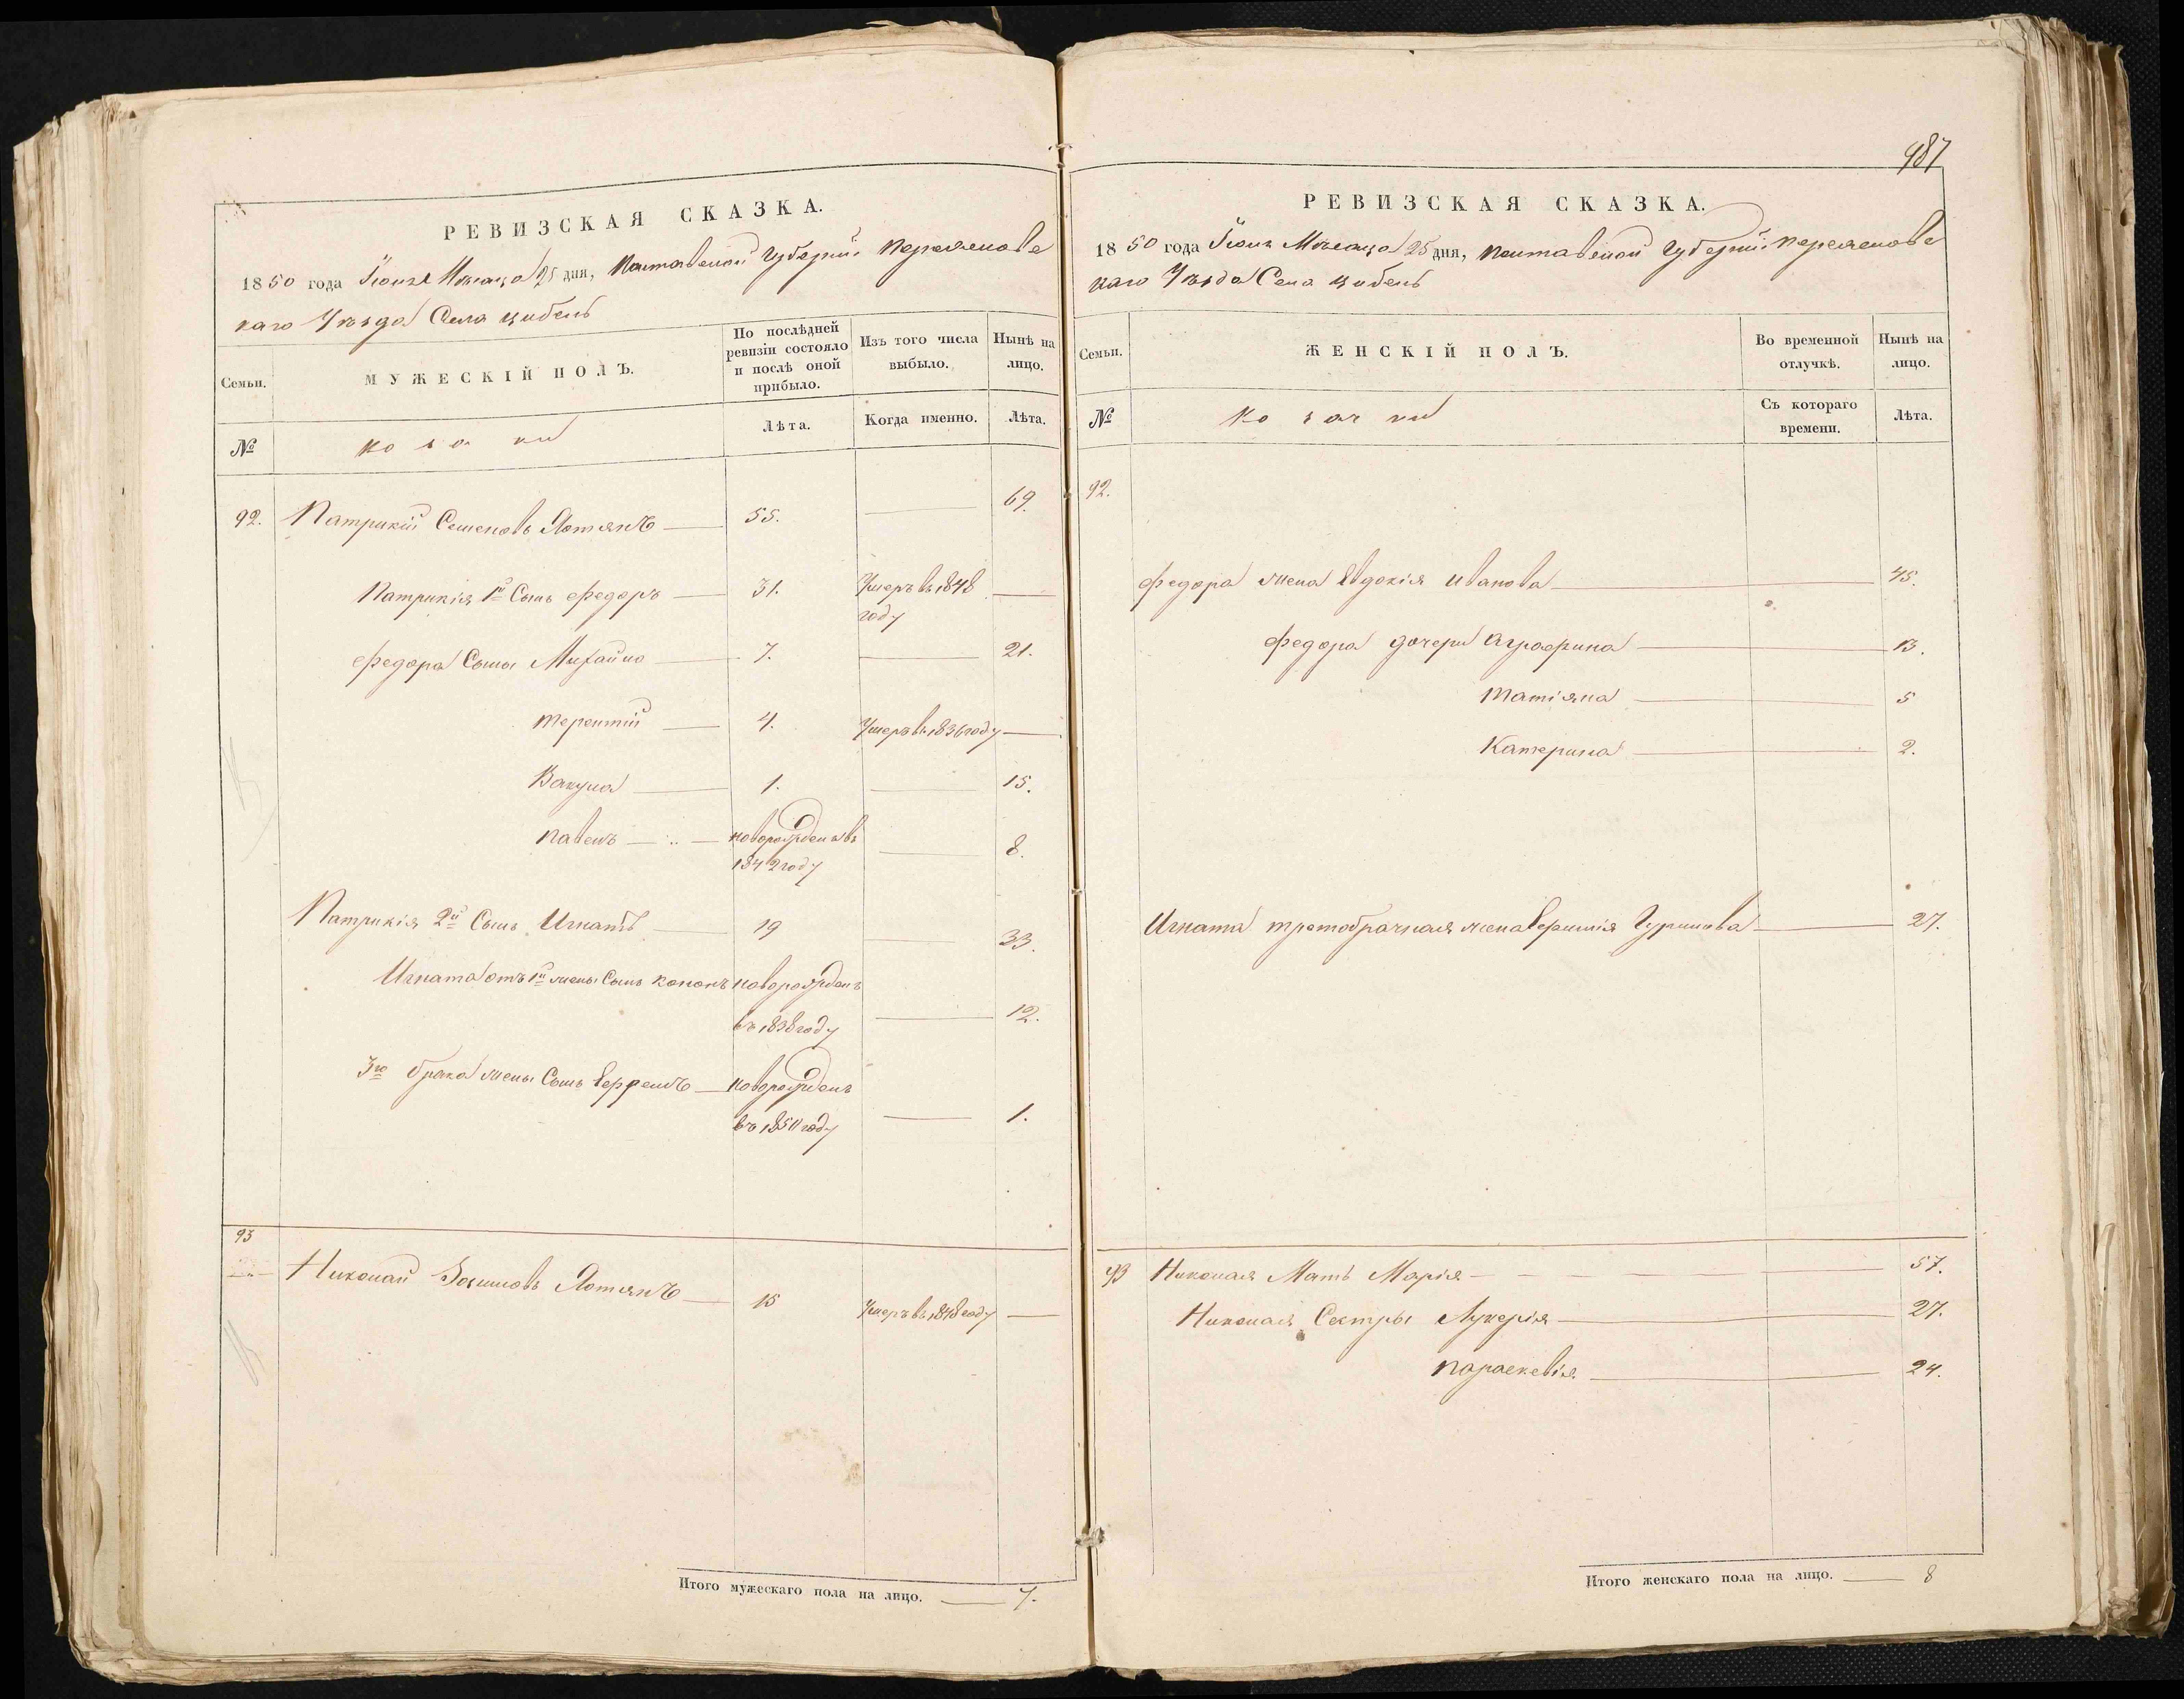 РЕВИЗСКАЯ СКАЗКА.
1850 года Іюня Мѣсяца 25 дня, Полтавской Губерніи Переяславс
каго Уѣзда Села Цибель
Семьи.
МУЖЕСКІЙ ПОЛЪ.
По послѣдней ревизіи состояло и послѣ оной прибыло.
Изъ того числа выбыло.
Нынѣ на лицо.
№
Козаки
Лѣта.
Когда именно.
Лѣта.
92. Патрикій Семеновъ 55. 69.
Патрикія 1й Сынъ Федоръ 31. Умеръ въ 1848
году
Федора Сыны Михайло 7. 21.
Терентій 4. Умеръ въ 1836 году
Вакула 1. 15.
Павелъ новорожденъ въ
1842 году 8.
Патрикія 2й Сынъ Игнатъ 19 33.
Игната отъ 1й жены Сынъ Кононъ новорожденъ
въ 1838 году 12.
3го брака жены Сынъ новорожденъ
въ 1850 году 1.
93
Николай 15 Умеръ въ 1848 году
Итого мужескаго пола на лицо. 7.
987
РЕВИЗСКАЯ СКАЗКА.
1850 года Іюня Мѣсяца 25 дня, Полтавской Губерніи Переяславс
каго Уѣзда Села Цибель
Семьи.
ЖЕНСКІЙ ПОЛЪ.
Во временной отлучкѣ.
Нынѣ на лицо.
№
Козачки
Съ котораго времени.
Лѣта.
92.
Федора жена Евдокія Иванова 45.
Федора дочери Аграфина 13.
Татіяна 5
Катерина 2.
Игната третобрачная жена Гурынова 27.
93 Николая Мать Марія 57.
Николая Сестры Лукерія 27.
Параскевія 24.
Итого женскаго пола на лицо. 8